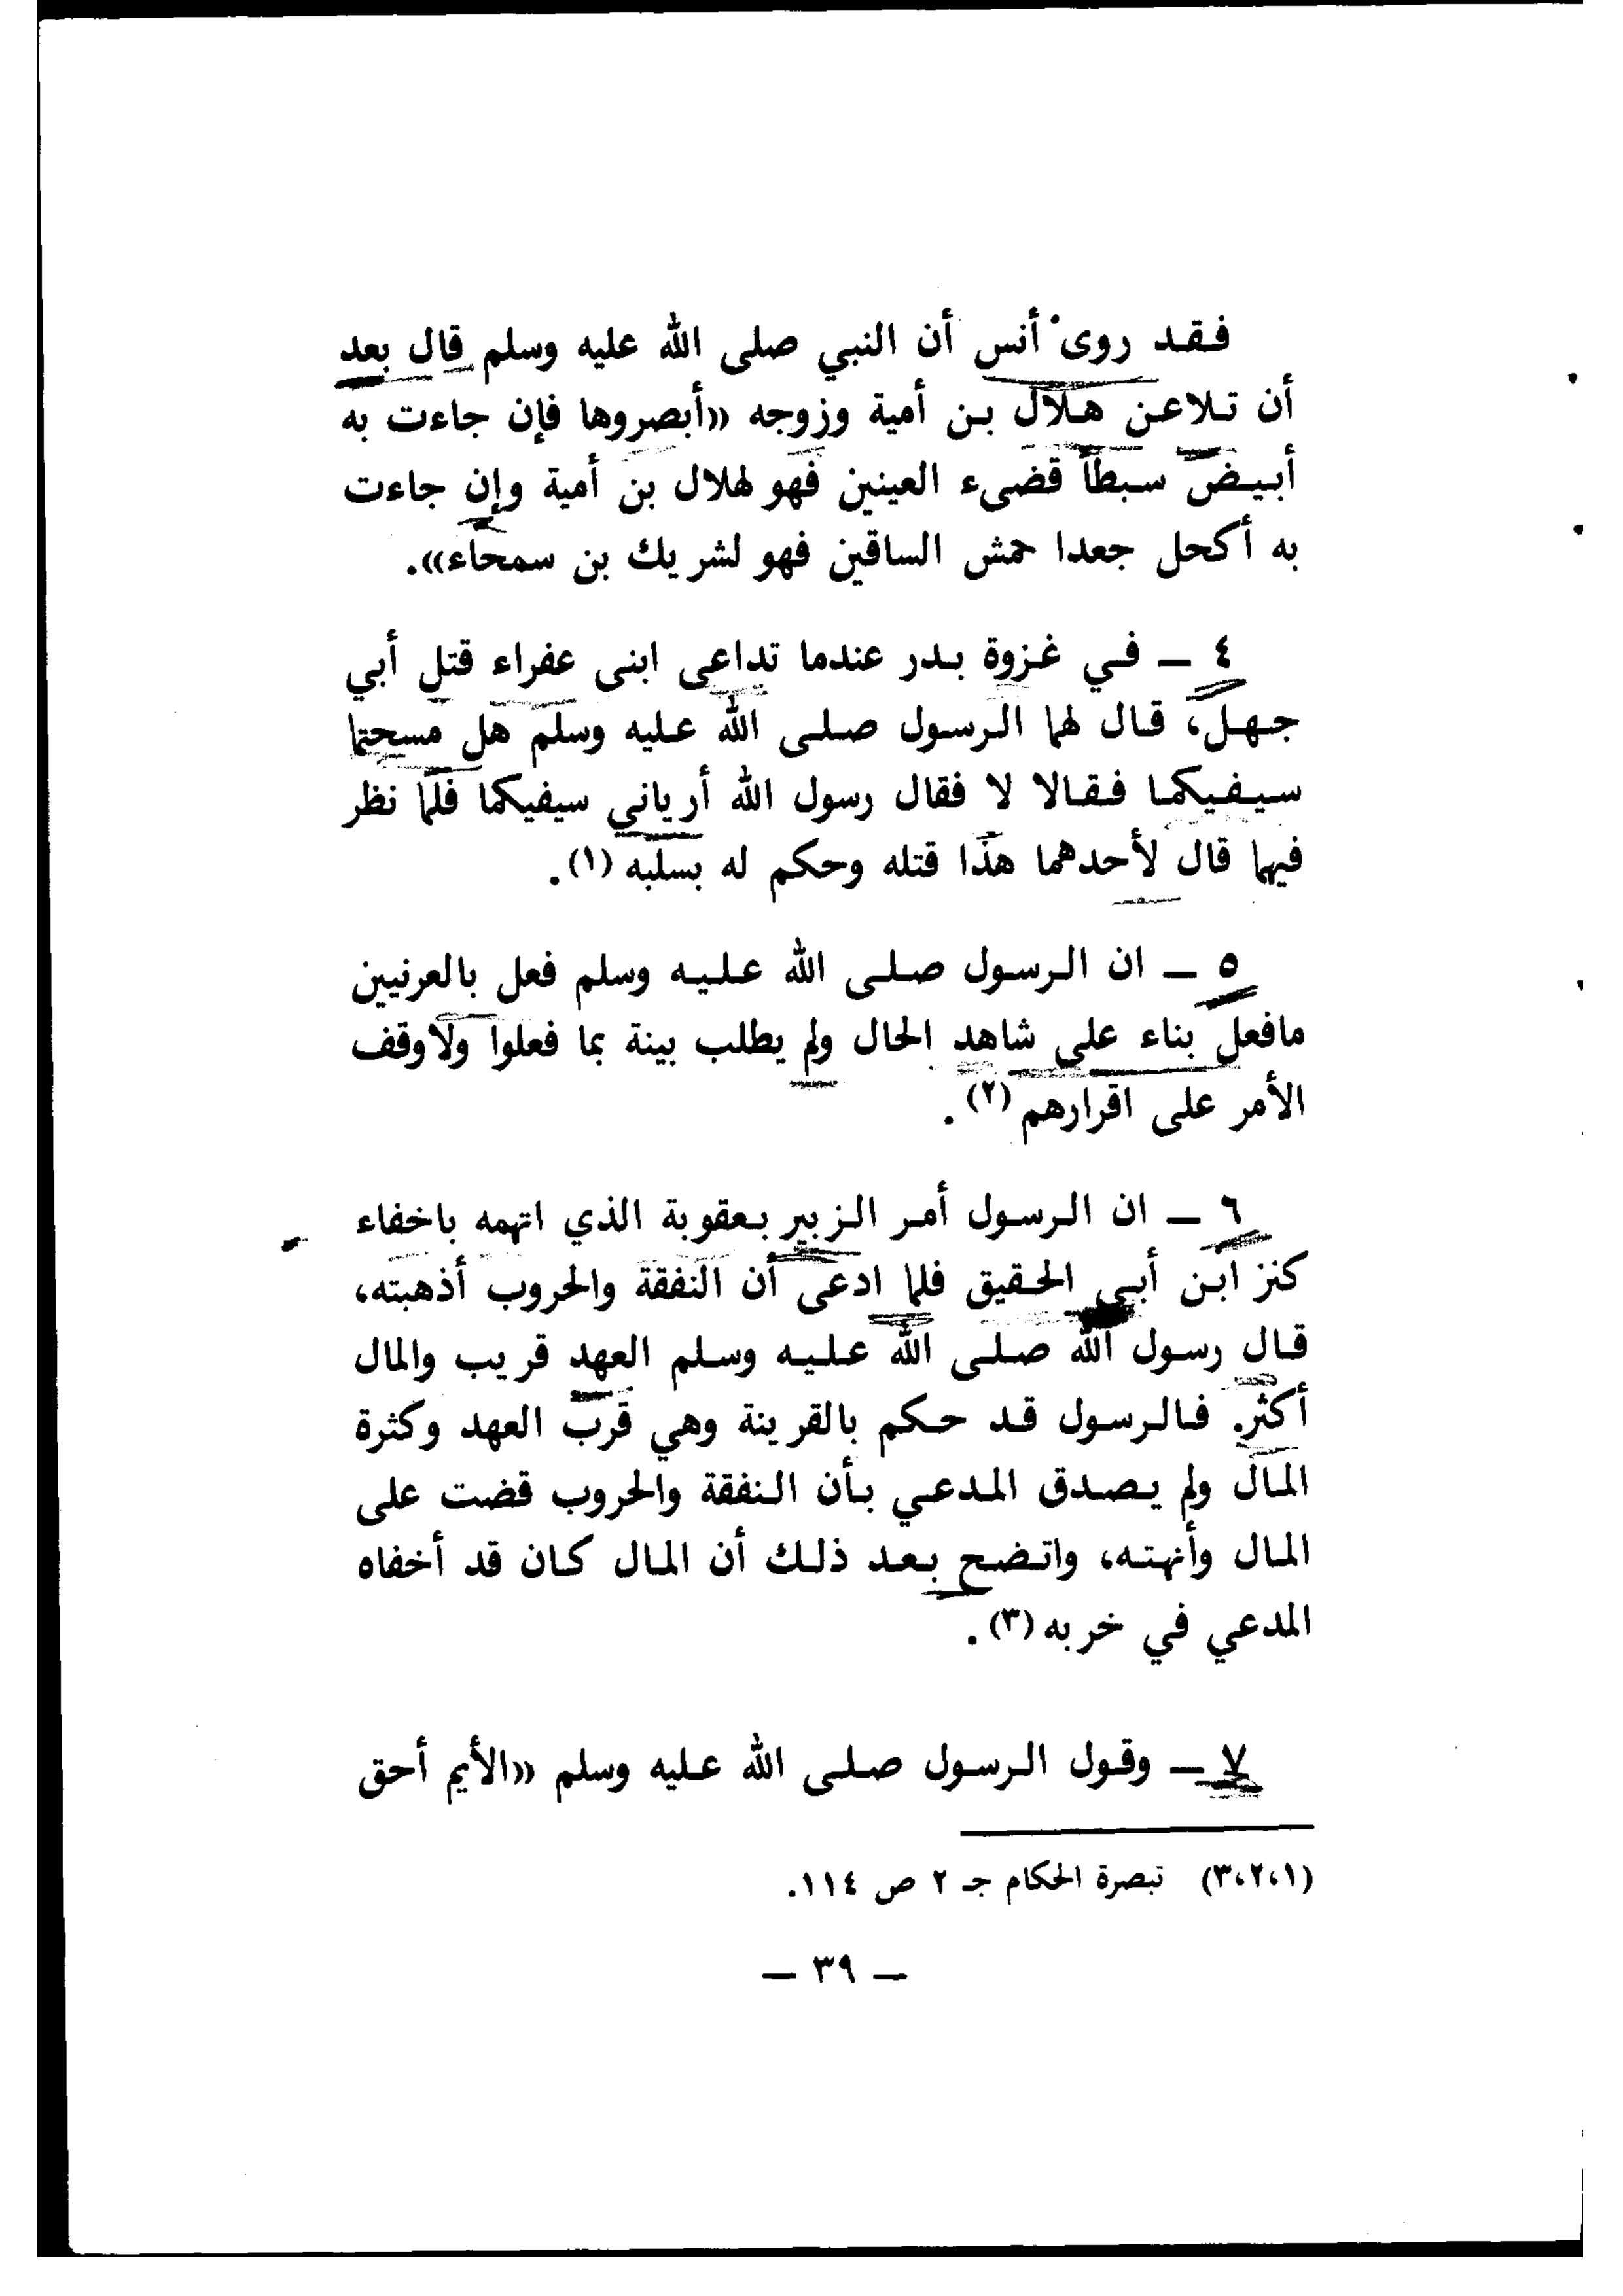 فقد روى أنس أن النبي صلى الله عليه وسلم قال بعد
أن تلاعن هلال بن أمية وزوجه «أبصروها فإن جاءت به
أبيض سبطاً قضىء العينين فهو لهلال بن أمية وإن جاءت
به أكحل جعدا حمش الساقين فهو لشريك بن سمحاء».
٤ – في غزوة بدر عندما تداعى ابنى عفراء قتل أبي
جهل، قال لهما الرسول صلى الله عليه وسلم هل مسحتما
سيفيكما فقالا لا فقال رسول الله أرياني سيفيكما فلما نظر
فيهما قال لأحدهما هذا قتله وحكم له بسلبه (١).
٥ – ان الرسول صلى الله عليه وسلم فعل بالعرنيين
مافعل بناء على شاهد الحال ولم يطلب بينة بما فعلوا ولاوقف
الأمر على اقرارهم (٢).
٦ – ان الرسول أمر الزبير بعقوبة الذي اتهمه باخفاء
كنز ابن أبي الحقيق فلما ادعى أن النفقة والحروب أذهبته،
قال رسول الله صلى الله عليه وسلم العهد قريب والمال
أكثر. فالرسول قد حكم بالقرينة وهي قرب العهد وكثرة
المال ولم يصدق المدعي بأن النفقة والحروب قضت على
المال وأنهته، واتضح بعد ذلك أن المال كان قد أخفاه
المدعي في خربه (٣).
٧ – وقول الرسول صلى الله عليه وسلم «الأيم أحق
(٣،٢،١) تبصرة الحكام جـ ٢ ص ١١٤.
– ٣٩ –